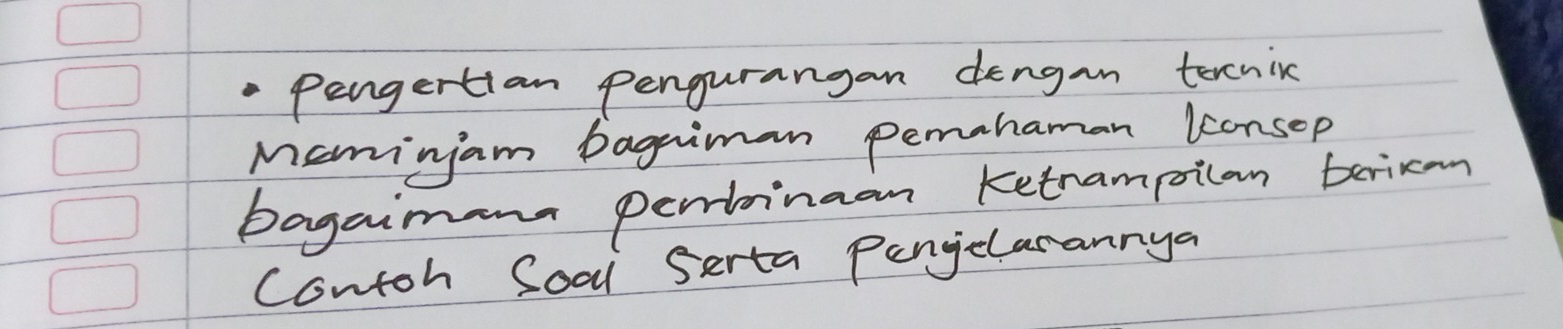 • Pengertian Pengurangan dengan teknik
Meminjam bagaiman Pemahaman konsep
bagaimana pembinaan Ketrampilan berikan
Contoh Soal Serta Penjelasannya